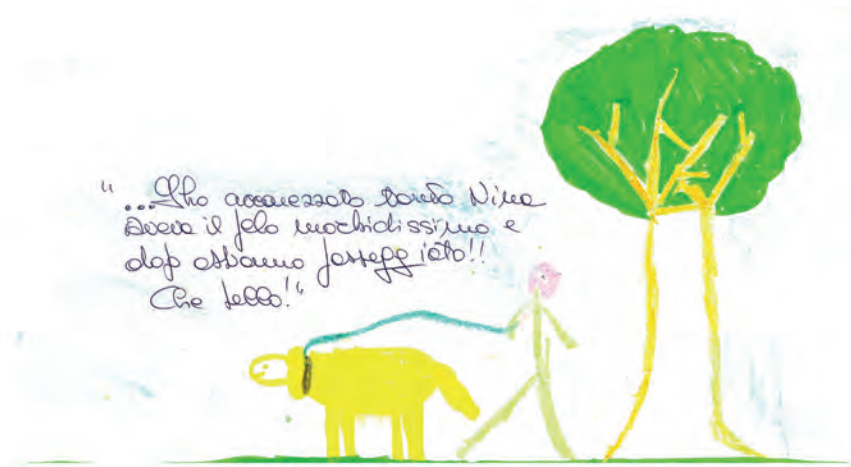 "...Ho accarezzato tanto Nina
aveva il pelo morbidissimo e
dopo abbiamo passeggiato!!
Che bello!"